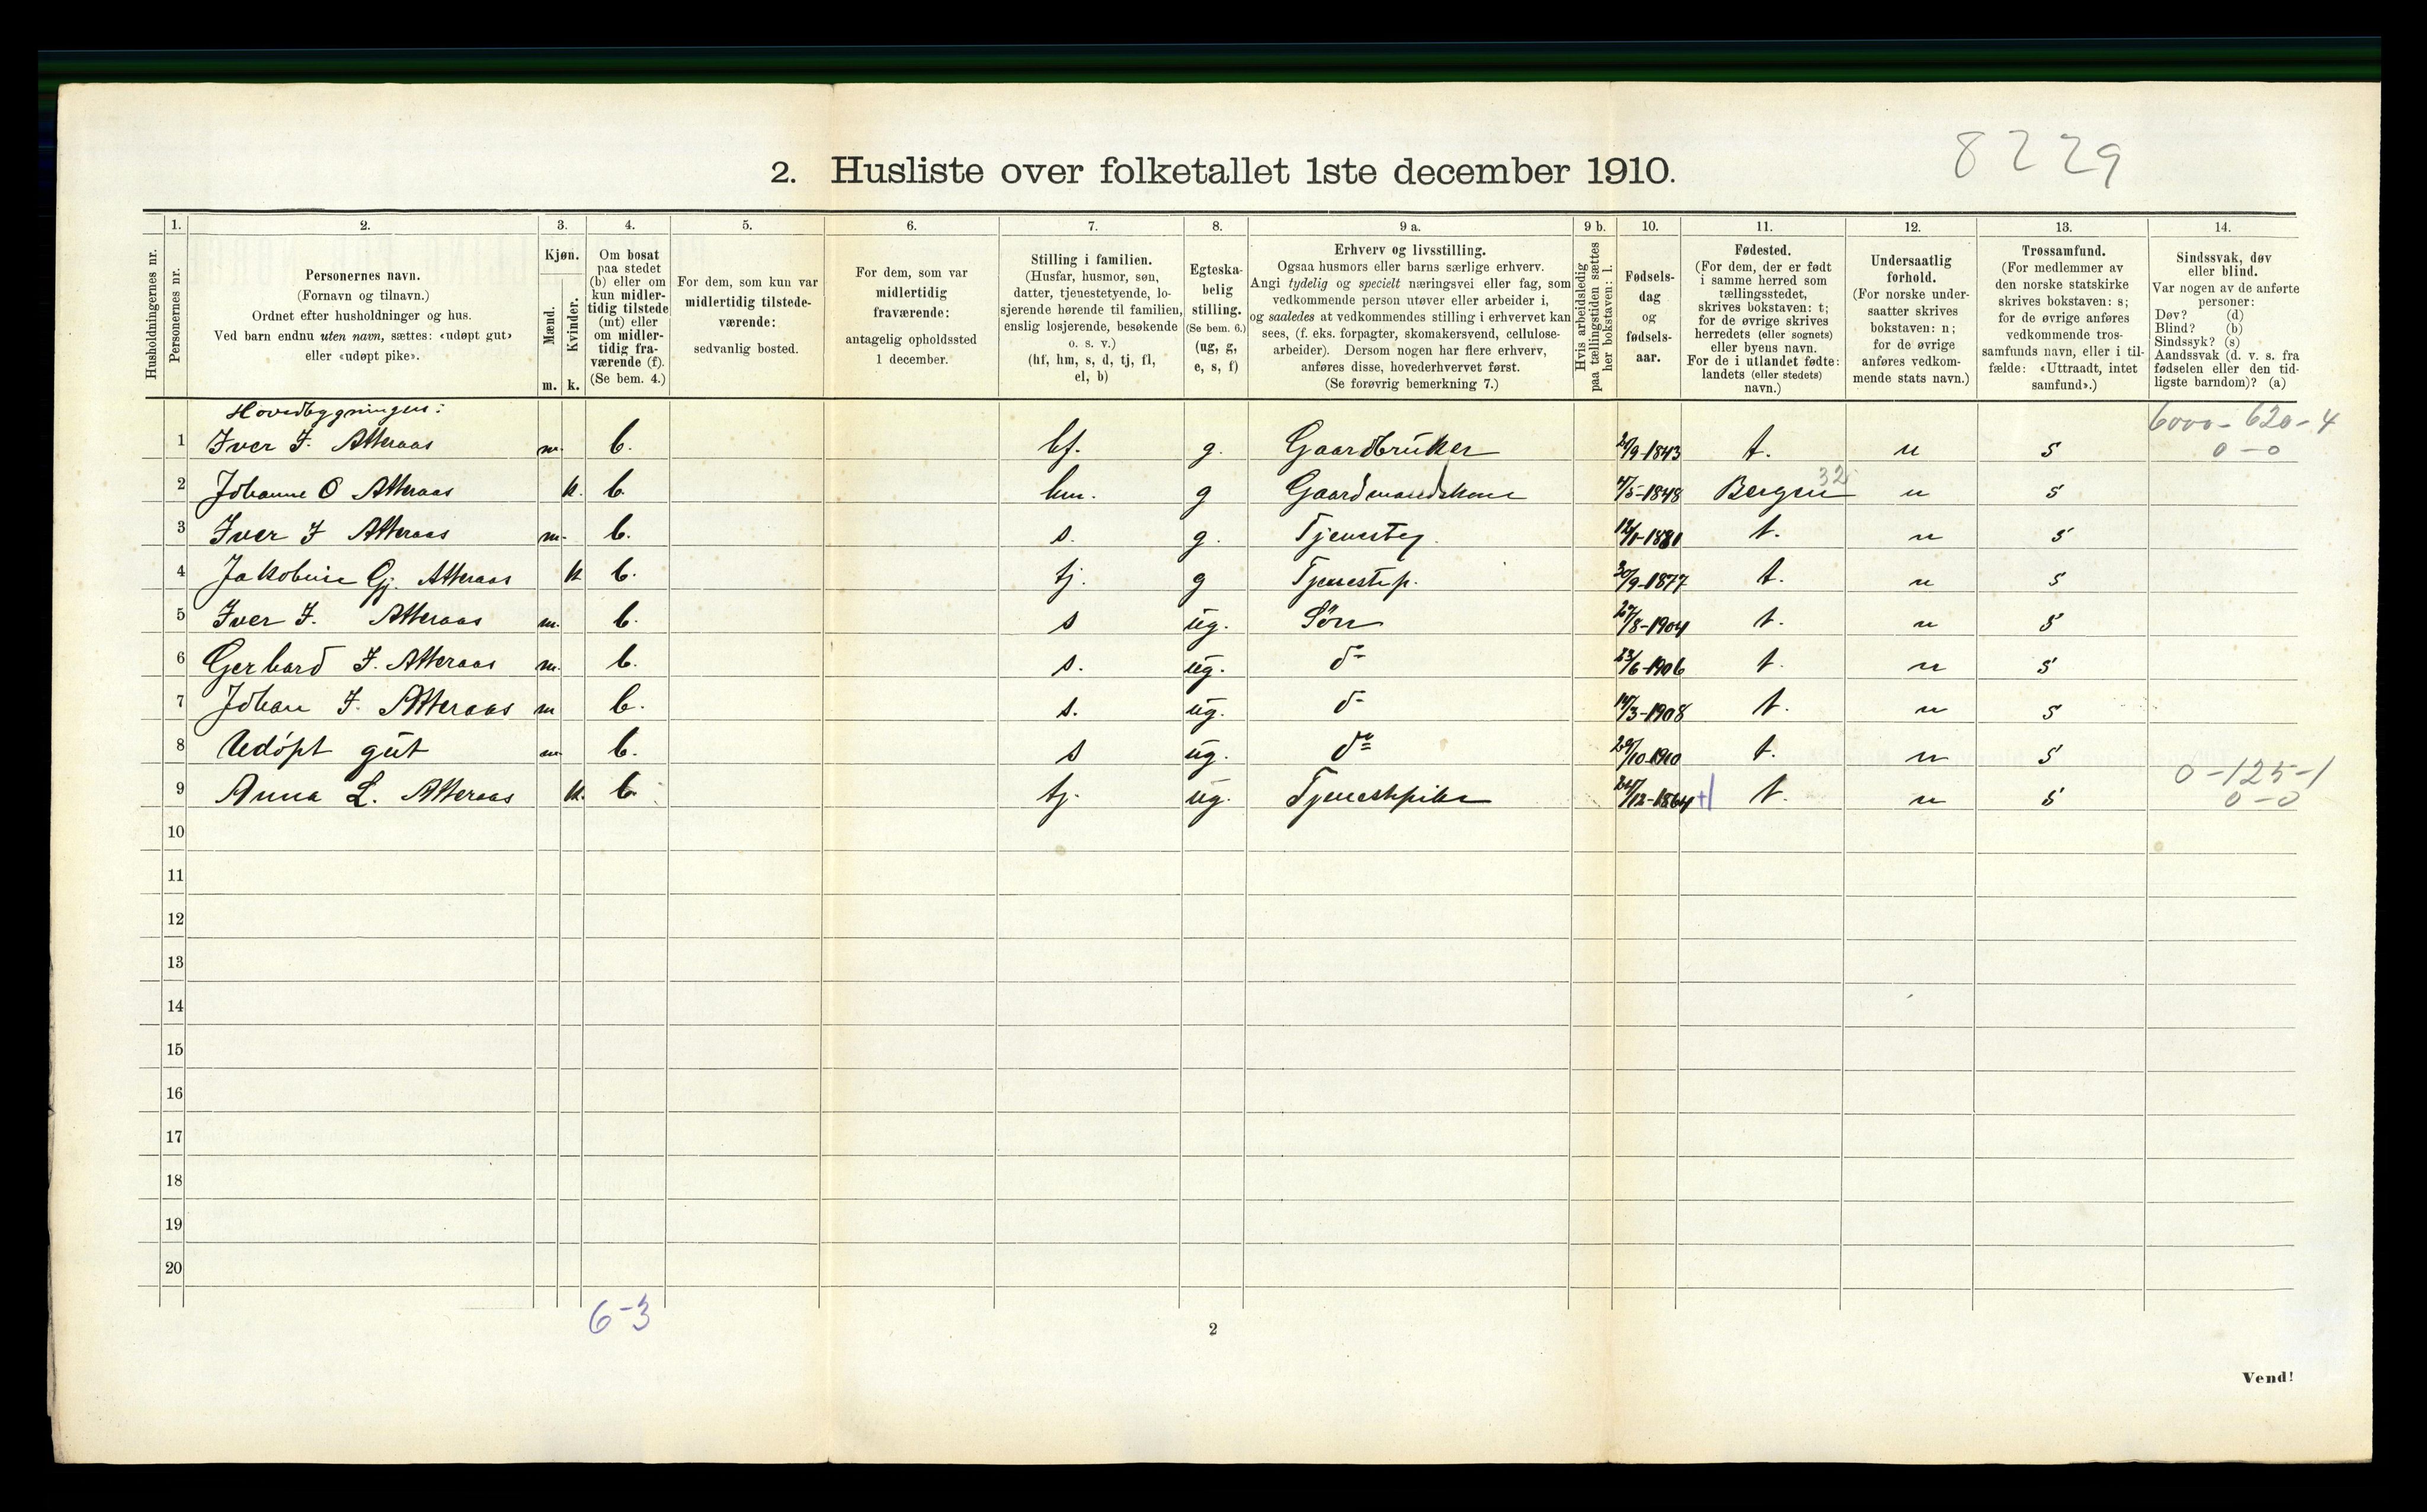 8229
2. Husliste over folketallet 1ste december 1910.
Husholdningernes nr.
1. Personernes nr.
2. Personernes navn. (Fornavn og tilnavn.) Ordnet efter husholdninger og hus. Ved barn endnu uten navn, sættes: «udøpt gut» eller «udøpt pike».
3. Kjøn. Mænd. m. Kvinder. k.
4. Om bosat paa stedet (b) eller om kun midlertidig tilstede (mt) eller om midlertidig fraværende (f). (Se bem. 4.)
5. For dem, som kun var midlertidig tilstedeværende: sedvanlig bosted.
6. For dem, som var midlertidig fraværende: antagelig opholdssted 1 december.
7. Stilling i familien. (Husfar, husmor, søn, datter, tjenestetyende, losjerende hørende til familien, enslig losjerende, besøkende o. s. v.) (hf, hm, s, d, tj, fl, el, b)
8. Egteskabelig stilling. (Se bem. 6.) (ug, g, e, s, f)
9 a. Erhverv og livsstilling. Ogsaa husmors eller barns særlige erhverv. Angi tydelig og specielt næringsvei eller fag, som vedkommende person utøver eller arbeider i, og saaledes at vedkommendes stilling i erhvervet kan sees, (f. eks. forpagter, skomakersvend, cellulosearbeider). Dersom nogen har flere erhverv, anføres disse, hovederhvervet først. (Se forøvrig bemerkning 7.)
9 b. Hvis arbeidsledig paa tællingstiden sættes her bokstaven: l.
10. Fødselsdag og fødselsaar.
11. Fødested. (For dem, der er født i samme herred som tællingsstedet, skrives bokstaven: t; for de øvrige skrives herredets (eller sognets) eller byens navn. For de i utlandet fødte: landets (eller stedets) navn.)
12. Undersaatlig forhold. (For norske undersaatter skrives bokstaven: n; for de øvrige anføres vedkommende stats navn.)
13. Trossamfund. (For medlemmer av den norske statskirke skrives bokstaven: s; for de øvrige anføres vedkommende trossamfunds navn, eller i tilfælde: «Uttraadt, intet samfund».)
14. Sindssvak, døv eller blind. Var nogen av de anførte personer: Døv? (d) Blind? (b) Sindssyk? (s) Aandssvak (d. v. s. fra fødselen eller den tidligste barndom)? (a)
Hovedbygningen: 6000-620-4
1 Iver I. Atteraas m. b. hf. g. Gaardbruker 1843 t. n s 0-0
2 Johanne O Atteraas k. b. hm. g Gaardmandskone 4/5-1848 Bergen 32 n s
3 Iver I Atteraas m. b. s. g. 1881 t. n s
4 Jakobine Gj. Atteraas k b. tj. g Tjenestep. 30/9-1877 t. n s
5 Iver I. Atteraas m. b. s ug. Sön 27/8-1904 t. n s
6 Gerhard I. Atteraas m. b. s. ug. do 23/6-1906 t. n s
7 Johan I. Atteraas m b. s. ug. do 14/3-1908 t. n s
8 Udöpt gut m b. s ug. do 29/10-1910 t. n s
9 Anna L. Atteraas k. b. tj. ug. Tjenestepike 24/12-1864 t. n s 0-125-1 0-0
10
11
12
13
14
15
16
17
18
19
20
6-3
2
Vend!